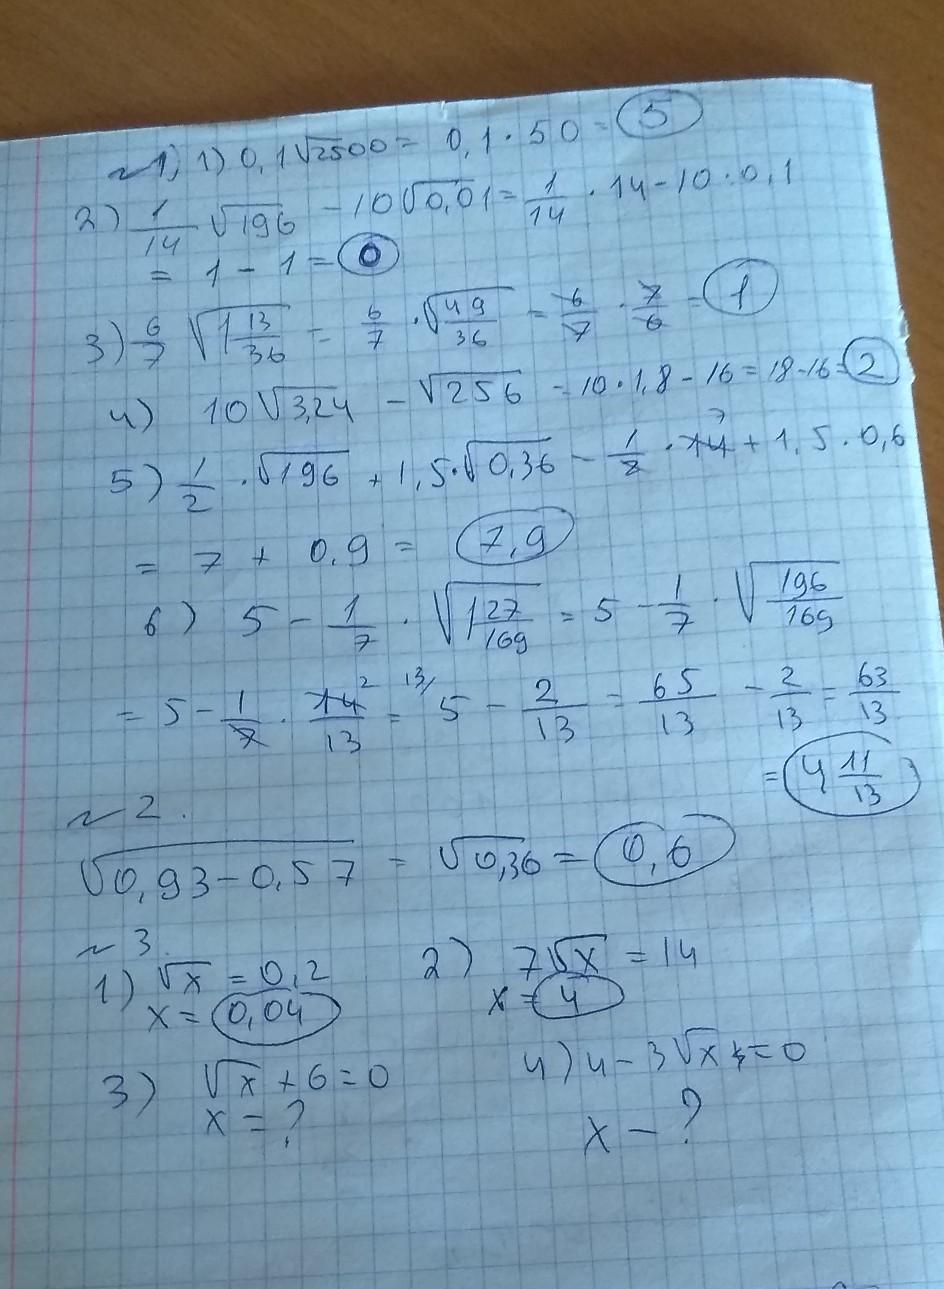 №1, 1) 0,1√2500 = 0,1 · 50 = 5
2) 1/14 √196 - 10√0,01 = 1/14 · 14 - 10 · 0,1
= 1 - 1 = 0
3) 6/7 √1 13/36 = 6/7 · √49/36 = 6/7 · 7/6 = 1
4) 10√3,24 - √256 = 10 · 1,8 - 16 = 18 - 16 = 2
5) 1/2 · √196 + 1,5 · √0,36 = 1/2 · 14 7 + 1,5 · 0,6
= 7 + 0,9 = 7,9
6) 5 - 1/7 · √1 27/169 = 5 - 1/7 · √196/169
= 5 - 1/7 · 14 2/13 = 13/ 5 - 2/13 = 65/13 - 2/13 = 63/13
= 4 11/13
№2.
√0,93-0,57 = √0,36 = 0,6
№3.
1) √x = 0,2 2) 7√x = 14
x = 0,04 x = 4
3) √x + 6 = 0 4) 4 - 3√x = 0
x = ? x - ?